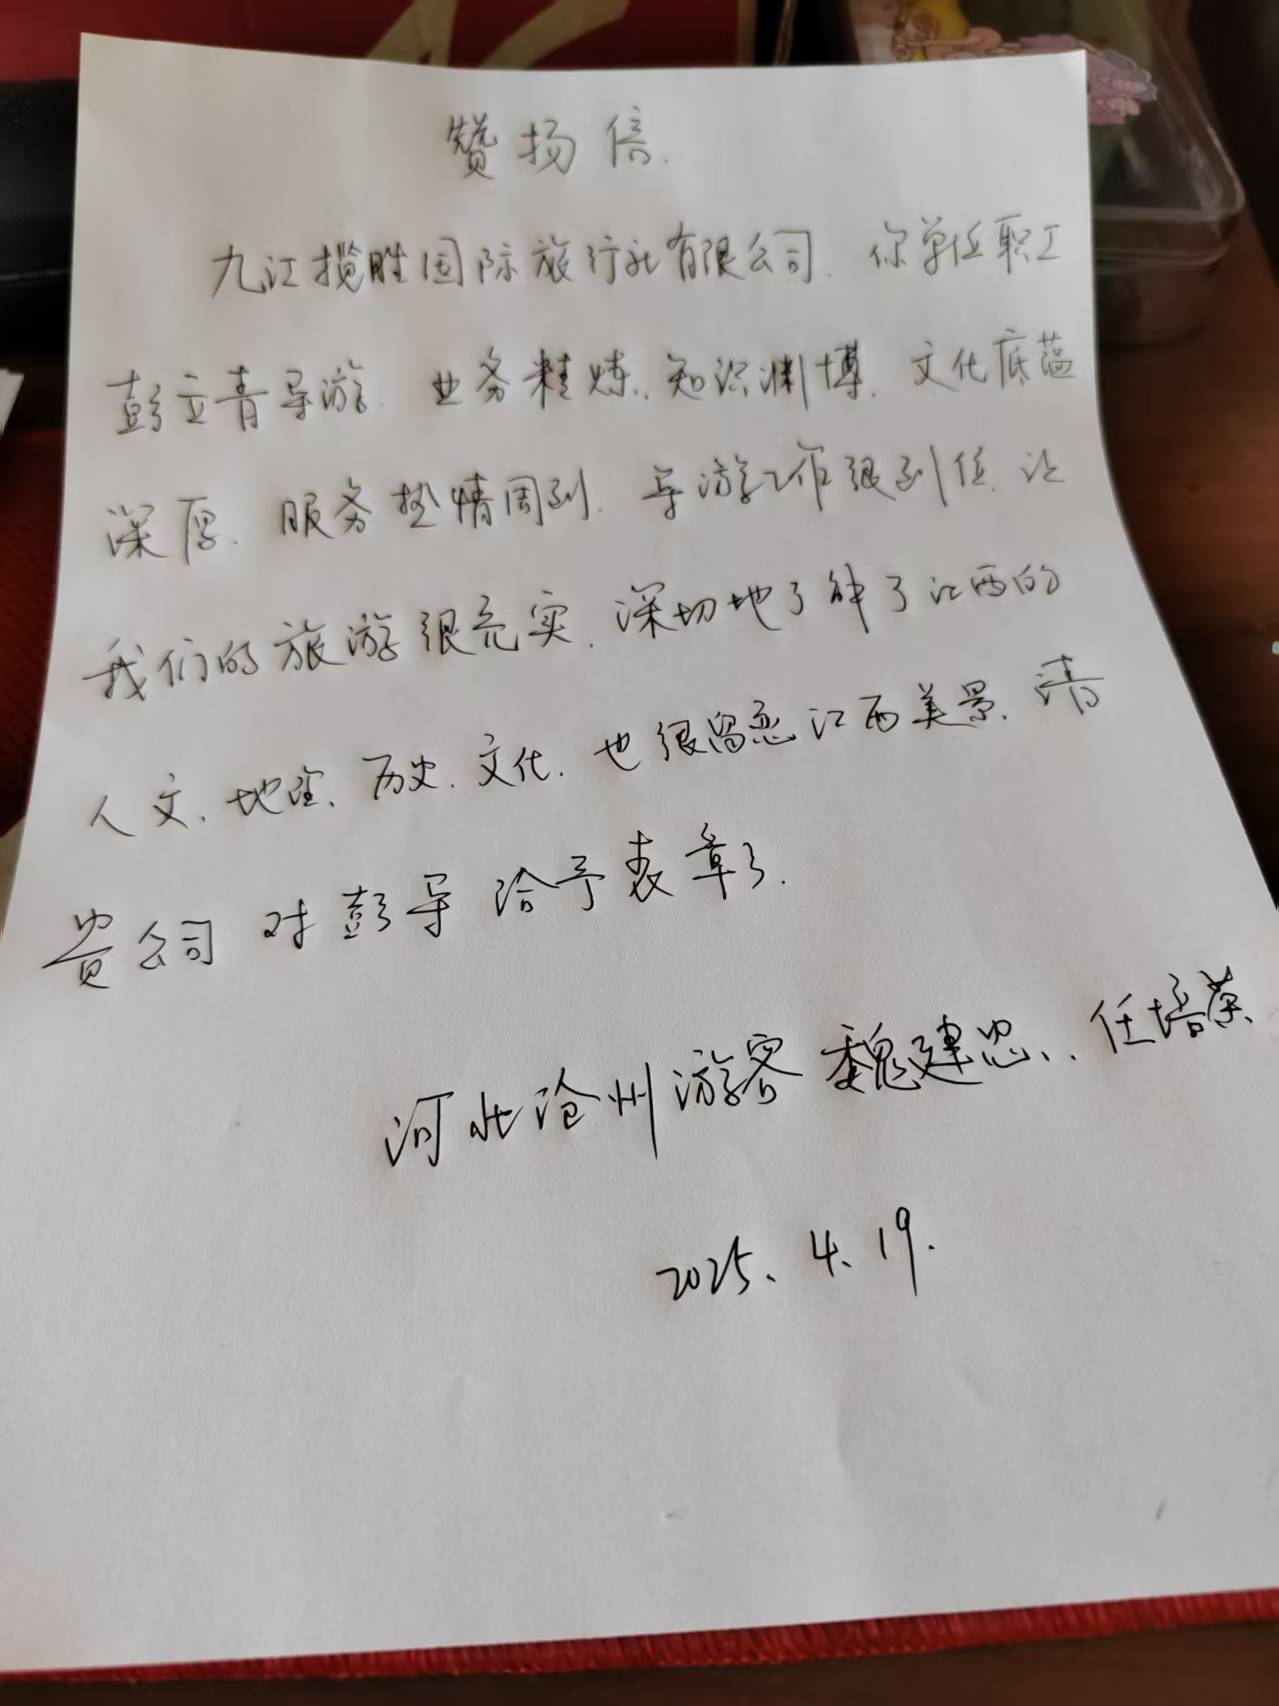 赞扬信.
九江揽胜国际旅行社有限公司. 你单位职工
彭立青导游. 业务精炼、知识渊博. 文化底蕴
深厚. 服务热情周到. 导游工作很到位. 让
我们的旅游很充实. 深切地了解了江西的
人文、地理、历史. 文化. 也很留恋江西美景. 请
贵公司对彭导给予表彰.
河北沧州游客魏建忠、任培荣
2025.4.19.